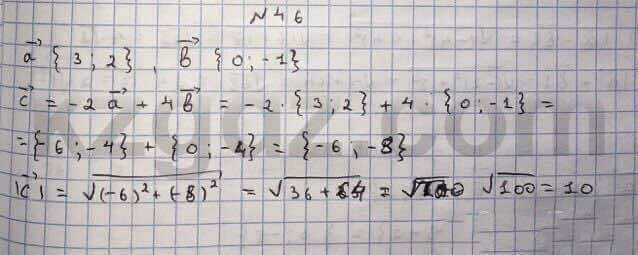 № 46
a⃗ {3; 2}, b⃗ {0; -1}
c⃗ = -2a⃗ + 4b⃗ = -2 · {3; 2} + 4 · {0; -1} =
= {-6; -4} + {0; -4} = {-6; -8}
|c⃗| = √((-6)² + (-8)²) = √(36 + 64) = √100 √100 = 10